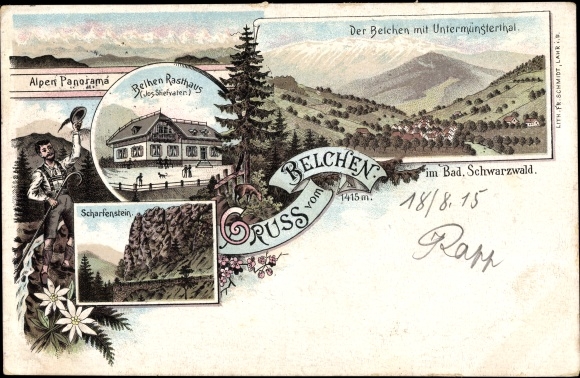 Der Belchen mit Untermünsterthal.
Alpen Panorama
Belhen Rasthaus
(Jos. Stiefvater.)
LITH. FR. SCHMIDT, LAHR i. B.
GRUSS vom BELCHEN.
1415 m.
im Bad. Schwarzwald.
Scharfenstein.
18/8. 15
Rapp